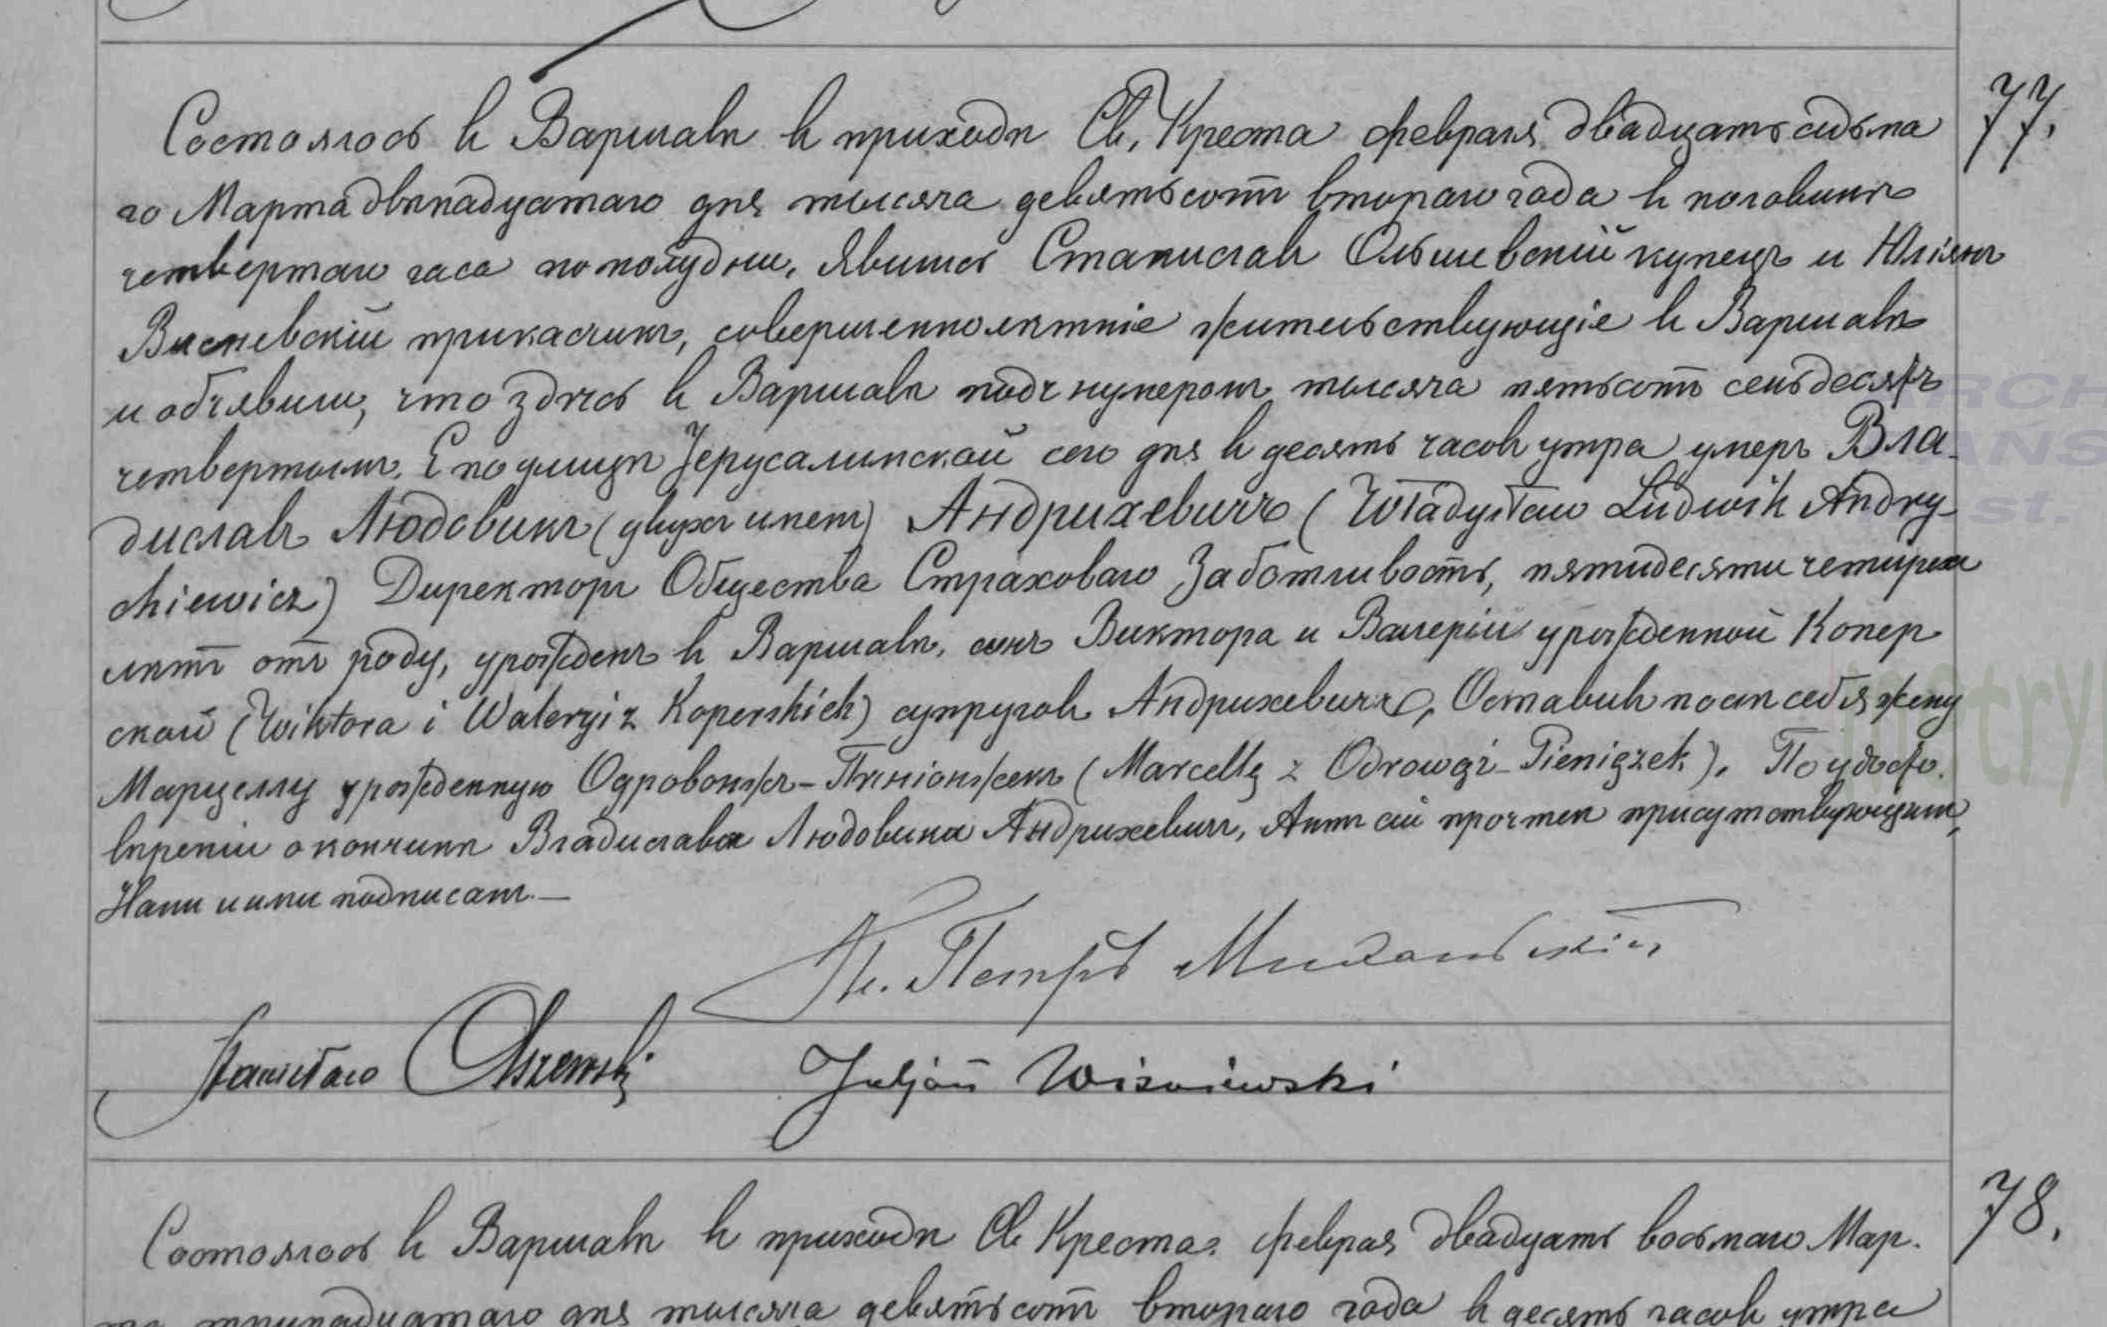 77.
Состоялось въ Варшавѣ въ приходѣ Св. Креста февраля двадцать седьма
го Марта двѣнадцатаго дня тысяча девятьсотъ втораго года въ половинѣ
четвертаго часа по полудни. Явились Станиславъ Ольшевскій купецъ и Юліянъ
Висневскій прикасчикъ, совершеннолѣтніе жительствующіе въ Варшавѣ
и объявили, что здѣсь въ Варшавѣ подъ нумеромъ тысяча пятьсотъ семьдесятъ
четвертымъ Е по улицѣ Іерусалимской сего дня въ десять часовъ утра умеръ Вла-
диславъ Людовикъ (двухъ именъ) Андрихевичъ (Władysław Ludwik Andry-
chiewicz) Директоръ Общества Страховаго Заботливость, пятидесяти четырехъ
лѣтъ отъ роду, урожденъ въ Варшавѣ, сынъ Виктора и Валеріи урожденной Копер
ской (Wiktora i Waleryi z Koperskich) супруговъ Андрихевичъ, Оставивъ послѣ себя жену
Марцеллу урожденную Одровонжъ-Пѣніонжекъ (Marcellę z Odrowąż-Pieniążek). По удосто.
вѣреніи о кончинѣ Владислава Людовика Андрихевичъ, Актъ сей прочтенъ присутствующимъ,
Нами и ими подписанъ.—
Кс. Петръ
Stanisław Olszewski Juljan Wiśniewski
78.
Состоялось въ Варшавѣ въ приходѣ Св Креста февраля двадцать восьмаго Мар.
та тринадцатаго дня тысяча девятьсотъ втораго года въ десять часовъ утра
ARCH
WANS
st.
metry